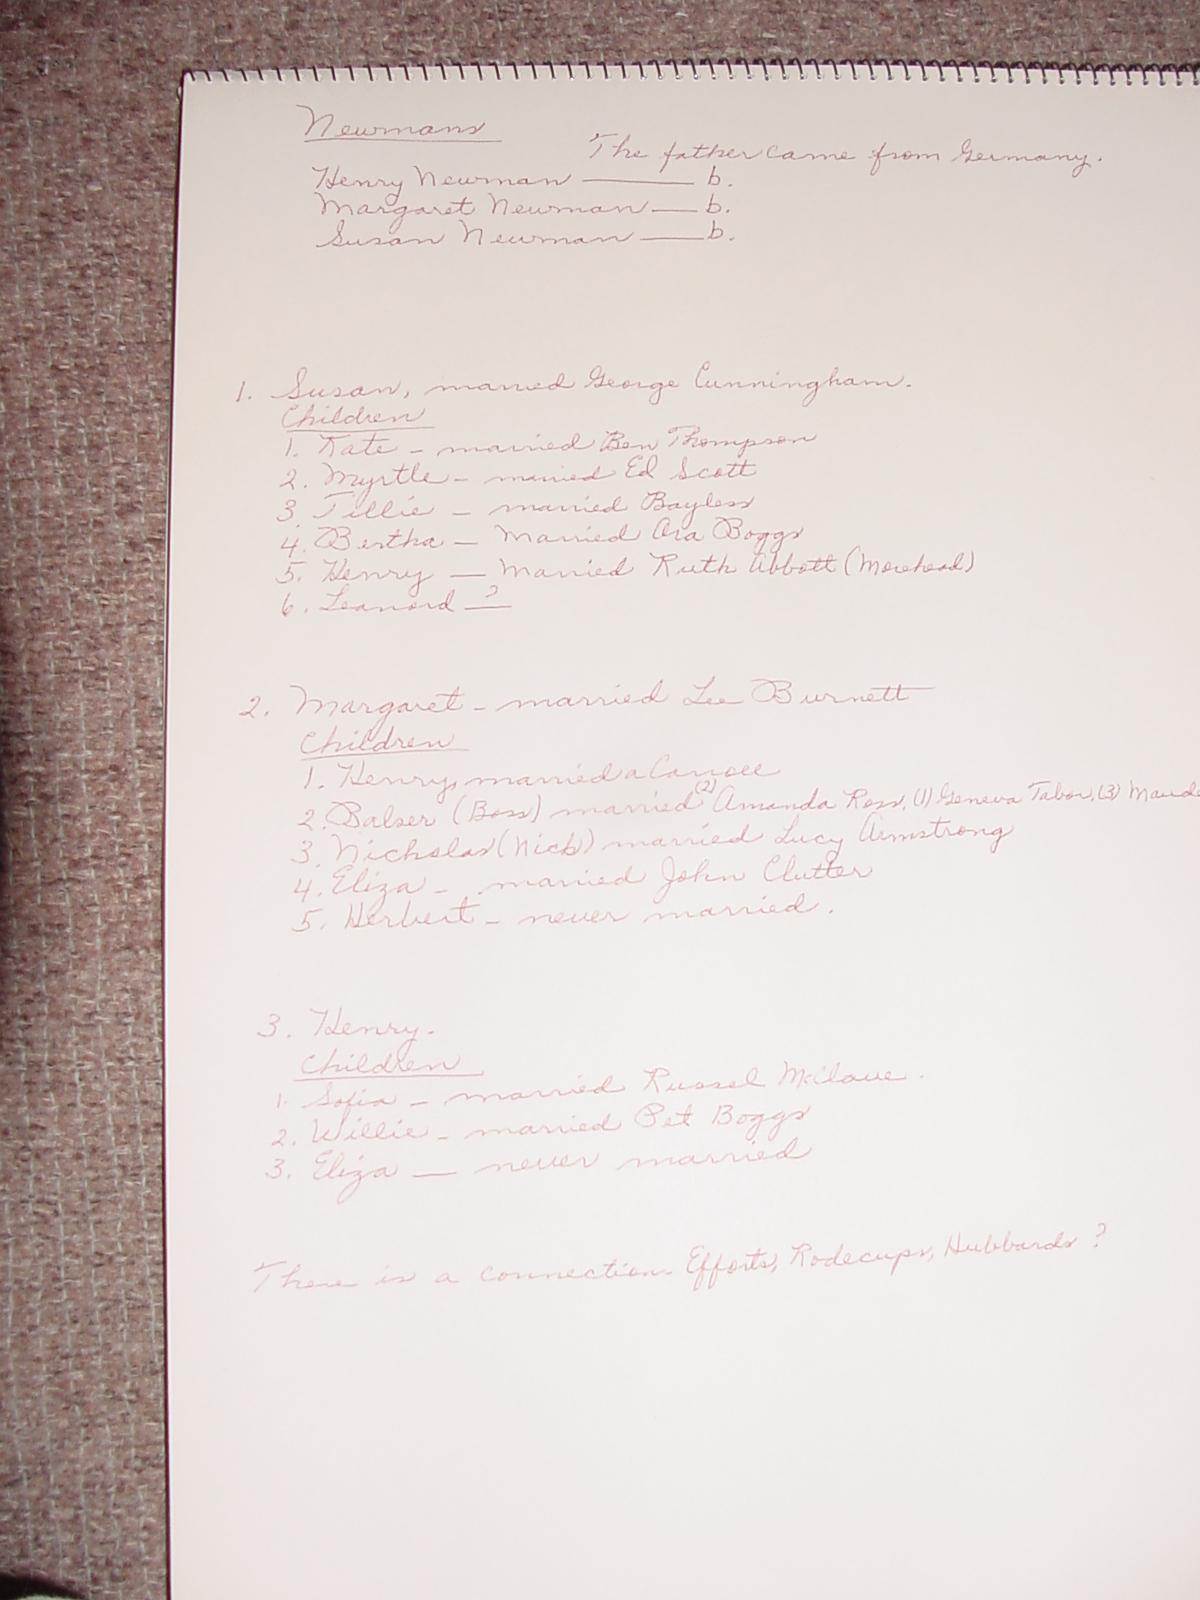 Newmans
The father came from Germany.
Henry Newman ——— b.
Margaret Newman — b.
Susan Newman — b.
1. Susan, married George Cunningham.
Children
1. Kate - married Ben Thompson
2. Myrtle - married Ed Scott
3. Tillie - married Bayless
4. Bertha - Married Ora Boggs
5. Henry — Married Ruth Abbott (Morehead)
6. Leanord ?
2. Margaret - married Lee Burnett
Children
1. Henry, married a
2. Balser (Boss) married (2) Amanda Ross, (1) Geneva Tabor, (3) Maude
3. Nicholas (Nick) married Lucy Armstrong
4. Eliza - married John Clutter
5. Herbert - never married.
3. Henry.
Children
1. Sofia - married Russel
2. Willie - married Pet Boggs
3. Eliza — never married
There is a connection - Efforts, Rodecups, Hubbards ?